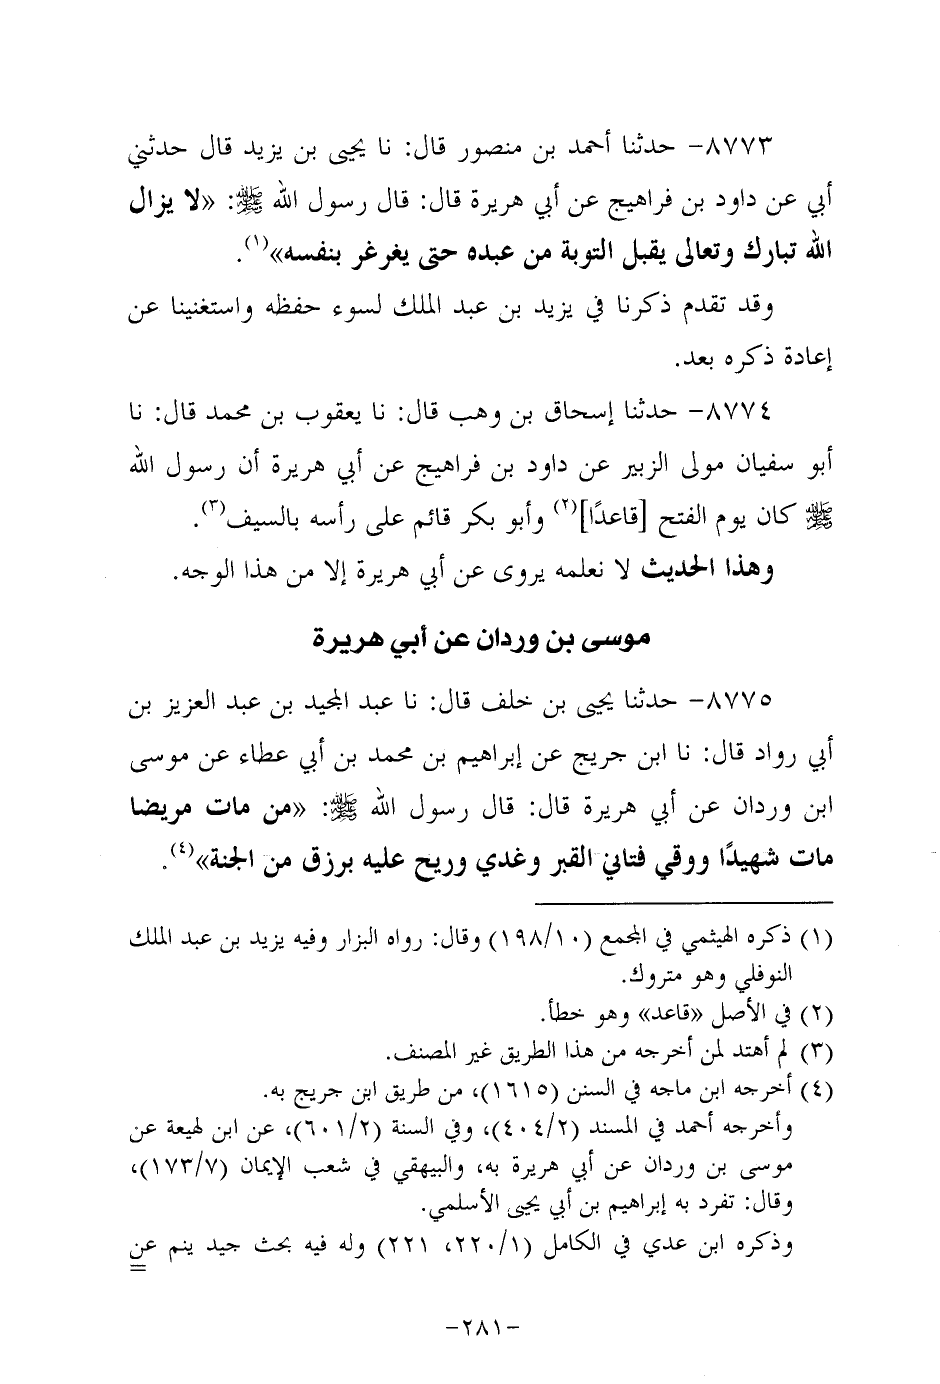 ٨٧٧٣– حدثنا أحمد بن منصور قال: نا يحيى بن يزيد قال حدثني
أبي عن داود بن فراهيج عن أبي هريرة قال: قال رسول الله ﷺ: «لا يزال
الله تبارك وتعالى يقبل التوبة من عبده حتى يغرغر بنفسه»(١).
وقد تقدم ذكرنا في يزيد بن عبد الملك لسوء حفظه واستغنينا عن
إعادة ذكره بعد.
٨٧٧٤– حدثنا إسحاق بن وهب قال: نا يعقوب بن محمد قال: نا
أبو سفيان مولى الزبير عن داود بن فراهيج عن أبي هريرة أن رسول الله
ﷺ كان يوم الفتح [قاعدًا](٢) وأبو بكر قائم على رأسه بالسيف(٣).
وهذا الحديث لا نعلمه يروى عن أبي هريرة إلا من هذا الوجه.
موسى بن وردان عن أبي هريرة
٨٧٧٥– حدثنا يحيى بن خلف قال: نا عبد المجيد بن عبد العزيز بن
أبي رواد قال: نا ابن جريج عن إبراهيم بن محمد بن أبي عطاء عن موسى
ابن وردان عن أبي هريرة قال: قال رسول الله ﷺ: «من مات مريضا
مات شهيدًا ووقي فتاني القبر وغدي وريح عليه برزق من الجنة»(٤).
(١) ذكره الهيثمي في المجمع (١٩٨/١٠) وقال: رواه البزار وفيه يزيد بن عبد الملك
النوفلي وهو متروك.
(٢) في الأصل «قاعد» وهو خطأ.
(٣) لم أهتد لمن أخرجه من هذا الطريق غير المصنف.
(٤) أخرجه ابن ماجه في السنن (١٦١٥)، من طريق ابن جريج به.
وأخرجه أحمد في المسند (٤٠٤/٢)، وفي السنة (٦٠١/٢)، عن ابن لهيعة عن
موسى بن وردان عن أبي هريرة به، والبيهقي في شعب الإيمان (١٧٣/٧)،
وقال: تفرد به إبراهيم بن أبي يحيى الأسلمي.
وذكره ابن عدي في الكامل (٢٢٠/١، ٢٢١) وله فيه بحث جيد ينم عن
=
–٢٨١–